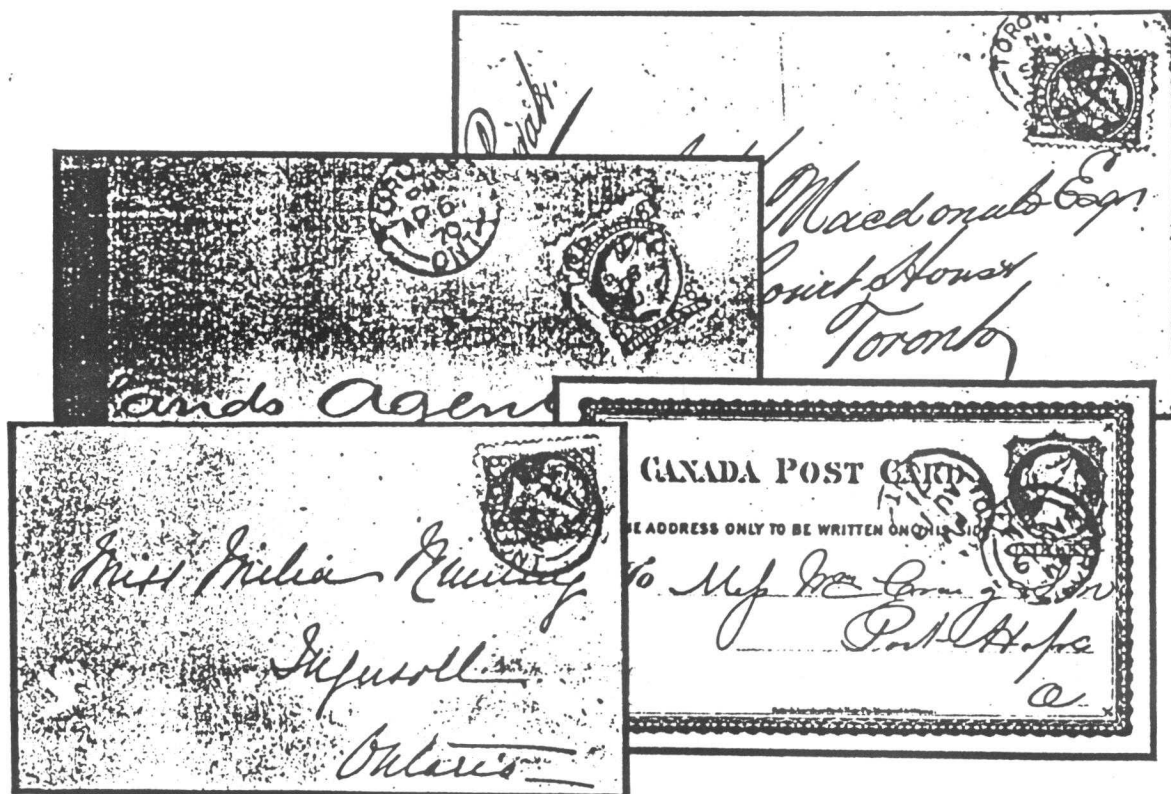 TORONT
Private.
Macdonald Esqr
Court House
Toronto
TORO
AP 6
70
ONT
ands Agent
CANADA POST CARD
E ADDRESS ONLY TO BE WRITTEN ON THIS SIDE
To Mess Wm Craig & Son
Port Hope
O
Miss Milia
Ingersoll
Ontario